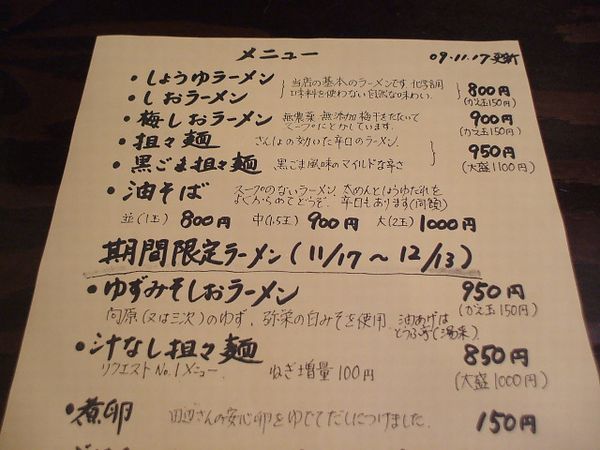 メニュー 09.11.17更新
・しょうゆラーメン 当店の基本のラーメンです 化学調
・しおラーメン 味料を使わない自然な味わい。 800円
(かえ玉150円)
・梅しおラーメン 無農薬 無添加 梅干をたたいて 900円
スープにとかしています。 (かえ玉150円)
・担々麺 さんしょのきいた辛口のラーメン。 950円
・黒ごま担々麺 黒ごま風味のマイルドな辛さ (大盛1100円)
・油そば スープのないラーメン、太めんとしょうゆだれを
よくからめてどうぞ、辛口もあります(同額)
並(1玉) 800円 中(1.5玉) 900円 大(2玉) 1000円
期間限定ラーメン(11/17～12/13)
・ゆずみそしおラーメン 950円
向原(又は三次)のゆず、弥栄の白みそを使用 油あげは (かえ玉150円)
とうふ家(湯来)
・汁なし担々麺 850円
リクエストNo.1メニュー ねぎ増量100円 (大盛1000円)
・煮卵 田辺さんの安心卵をゆでてだしにつけました。 150円